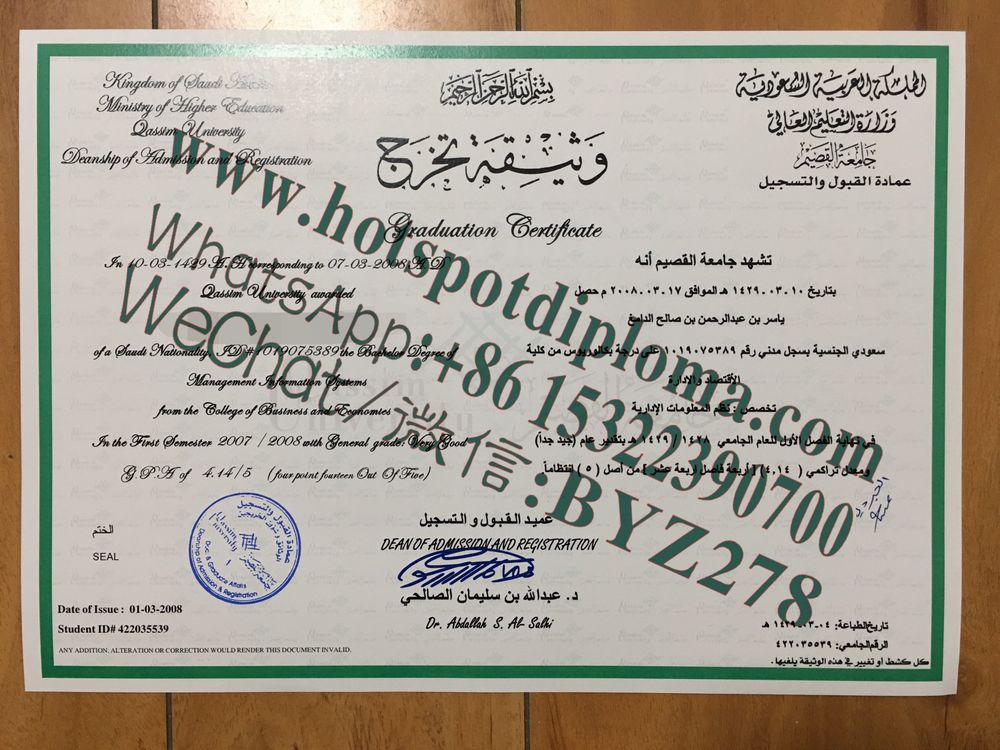 Kingdom of Saudi
Ministry of Higher Education
Qassim University
Deanship of Admission and Registration
بسم الله الرحمن الرحيم
المملكة العربية السعودية
وزارة التعليم العالي
جامعة القصيم
عمادة القبول والتسجيل
وثيقة تخرج
Graduation Certificate
In 10-03-1429 A.H corresponding to 07-03-2008 A.D
Qassim University awarded
of a Saudi Nationality, ID# 1019075389 the Bachelor Degree of
Management Information Systems
from the College of Business and Economies
In the First Semester 2007 / 2008 with General grade: Very Good
G.P.A of 4.14/5 (four point fourteen Out Of Five)
تشهد جامعة القصيم أنه
بتاريخ ١٠-٠٣-١٤٢٩ هـ الموافق ١٧-٠٣-٢٠٠٨ م حصل
ياسر بن عبدالرحمن بن صالح الدامغ
سعودي الجنسية بسجل مدني رقم ١٠١٩٠٧٥٣٨٩ على درجة بكالوريوس من كلية
الأقتصاد والادارة
تخصص : نظم المعلومات الإدارية
في نهاية الفصل الأول للعام الجامعي ١٤٢٨ / ١٤٢٩ هـ بتقدير عام (جيد جداً)
ومعدل تراكمي (٤,١٤) [أربعة فاصل اربعة عشر] من أصل (٥) انتظاماً
www.hotspotdiploma.com
WhatsApp:+86 15322390700
WeChat/微信:BYZ278
الختم
SEAL
عمادة القبول والتسجيل
Qassim University
Doc. & Graduate Affairs
Deanship of Admission & Registration
عميد القبول و التسجيل
DEAN OF ADMISSION AND REGISTRATION
د. عبدالله بن سليمان الصالحي
Dr. Abdallah S. Al- Salhi
Date of Issue : 01-03-2008
Student ID# 422035539
ANY ADDITION, ALTERATION OR CORRECTION WOULD RENDER THIS DOCUMENT INVALID.
تاريخ الطباعة: ٠٤-٠٣-١٤٢٩ هـ
الرقم الجامعي: ٤٢٢٠٣٥٥٣٩
كل كشط أو تغيير في هذه الوثيقة يلغيها.